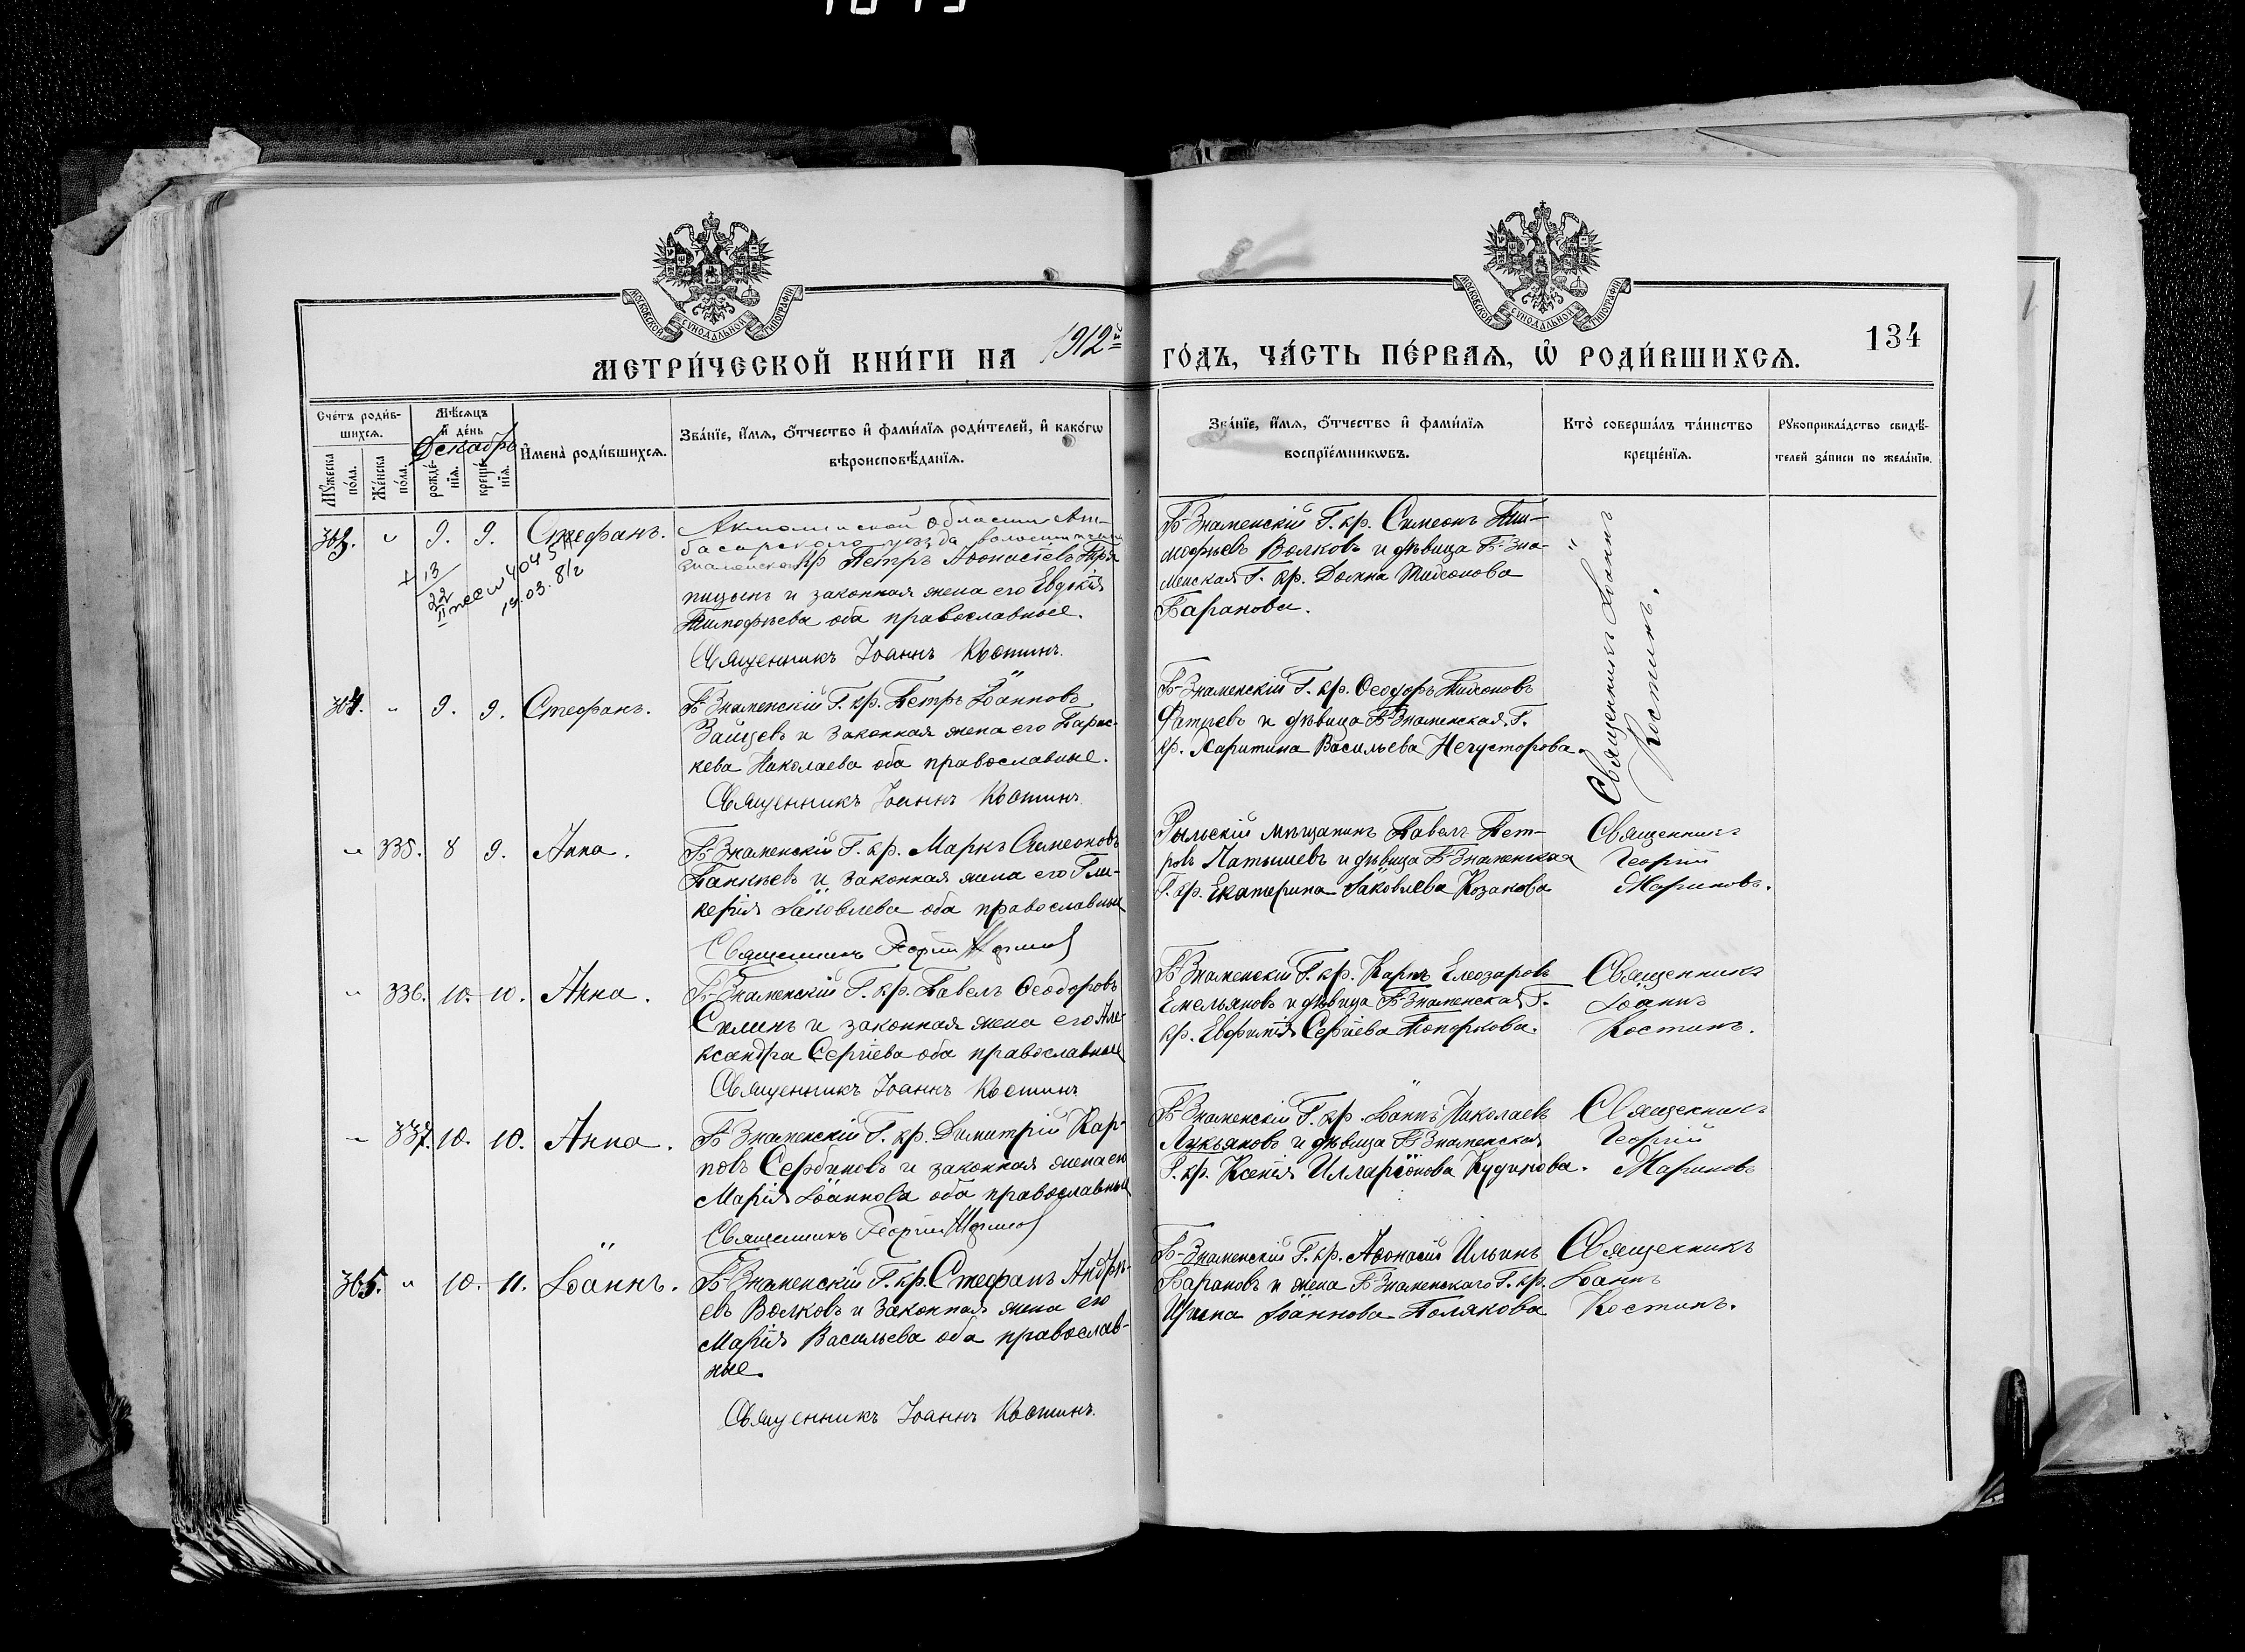 МОСКОВСКОЙ СѴНОДАЛЬНОЙ ТИПОГРАФІИ
МОСКОВСКОЙ СѴНОДАЛЬНОЙ ТИПОГРАФІИ
МЕТРИ́ЧЕСКОЙ КНИ́ГИ НА 1912й
ГО́ДЪ, ЧА́СТЬ ПЕ́РВАѦ, Ѡ҆ РОДИ́ВШИХСѦ.
134
Сче́тъ роди́в-
шихсѧ.
Мꙋ́жеска по́ла.
Же́нска по́ла.
Мѣ́сѧцъ
и҆ де́нь
Декабрь
рожде́-
нїѧ.
креще́-
нїѧ.
И҆мена̀ роди́вшихсѧ.
Зва́нїе, и҆́мѧ, ѻ҆́тчество и҆ фами́лїѧ роди́телей, и҆ како́гѡ
вѣроисповѣ́данїѧ.
Зва́нїе, и҆́мѧ, ѻ҆́тчество и҆ фами́лїѧ
воспрїе́мникѡвъ.
Кто̀ соверша́лъ та́инство
креще́нїѧ.
Рꙋкоприкла́дство свидѣ́-
телей за́писи по жела́нїю.
303. " 9. 9. Стефанъ.
+ 13
22
19.03.8½
Акмолинской области Ат-
басарскаго уѣзда волости
Знаменской кр Петръ Аѳонасіевъ
пицынъ и законная жена его Евдокія
Тимофѣева оба православные.
Священникъ Іоаннъ Костинъ.
Б-Знаменскій Г. кр. Симеонъ Тим-
мофѣевъ Волковъ и дѣвица Б-Зна-
менская Г. кр. Домна Тихонова
Баранова.
Священникъ Іоаннъ
Костинъ.
304. " 9. 9. Стефанъ.
Б-Знаменскій Г. кр. Петръ Іоанновъ
Зайцевъ и законная жена его Парас-
кева Николаева оба православные.
Священникъ Іоаннъ Костинъ
Б-Знаменскій Г. кр. Ѳеодоръ Тихоновъ
Фатѣевъ и дѣвица Б-Знаменская Г.
кр. Харитина Васильева Негусторова.
" 335. 8 9. Анна.
Б-Знаменскій Г. кр. Маркъ Симеоновъ
и законная жена его Гли-
керія Іаковлева оба православные
Священникъ Георгій Мариновъ
Рыльскій мѣщанинъ Павелъ Пет-
ровъ Латышевъ и дѣвица Б-Знаменская
Г. кр. Екатерина Іаковлева Козакова
Священникъ
Георгій
Мариновъ.
" 336. 10. 10. Анна.
Б-Знаменскій Г. кр. Павелъ Ѳеодоровъ
Силинъ и законная жена его Але-
ксандра Сергіева оба православные
Священникъ Іоаннъ Костинъ
Б-Знаменскій Г. кр. Карпъ Елеозаровъ
Емельяновъ и дѣвица Б-Знаменская Г.
кр. Евфимія Сергіева Топоркова.
Священникъ
Іоаннъ
Костинъ.
" 337. 10. 10. Анна.
Б-Знаменскій Г. кр. Димитрій Кар-
повъ Сербиновъ и законная жена его
Марія Іоаннова оба православные
Священникъ Георгій Мариновъ
Б-Знаменскій Г. кр. Іоаннъ Николаевъ
Лукьяновъ и дѣвица Б-Знаменская
Г. кр. Ксенія Илларіонова Кудинова.
Священникъ
Георгій
Мариновъ
305. " 10. 11. Іоаннъ.
Б-Знаменскій Г. кр. Стефанъ Андре-
евъ Волковъ и законная жена его
Марія Васильева оба православ-
ные.
Священникъ Іоаннъ Костинъ.
Б-Знаменскій Г. кр. Аѳонасій Ильинъ
Барановъ и жена Б-Знаменскаго Г. кр.
Ирина Іоаннова Полякова
Священникъ
Іоаннъ
Костинъ.